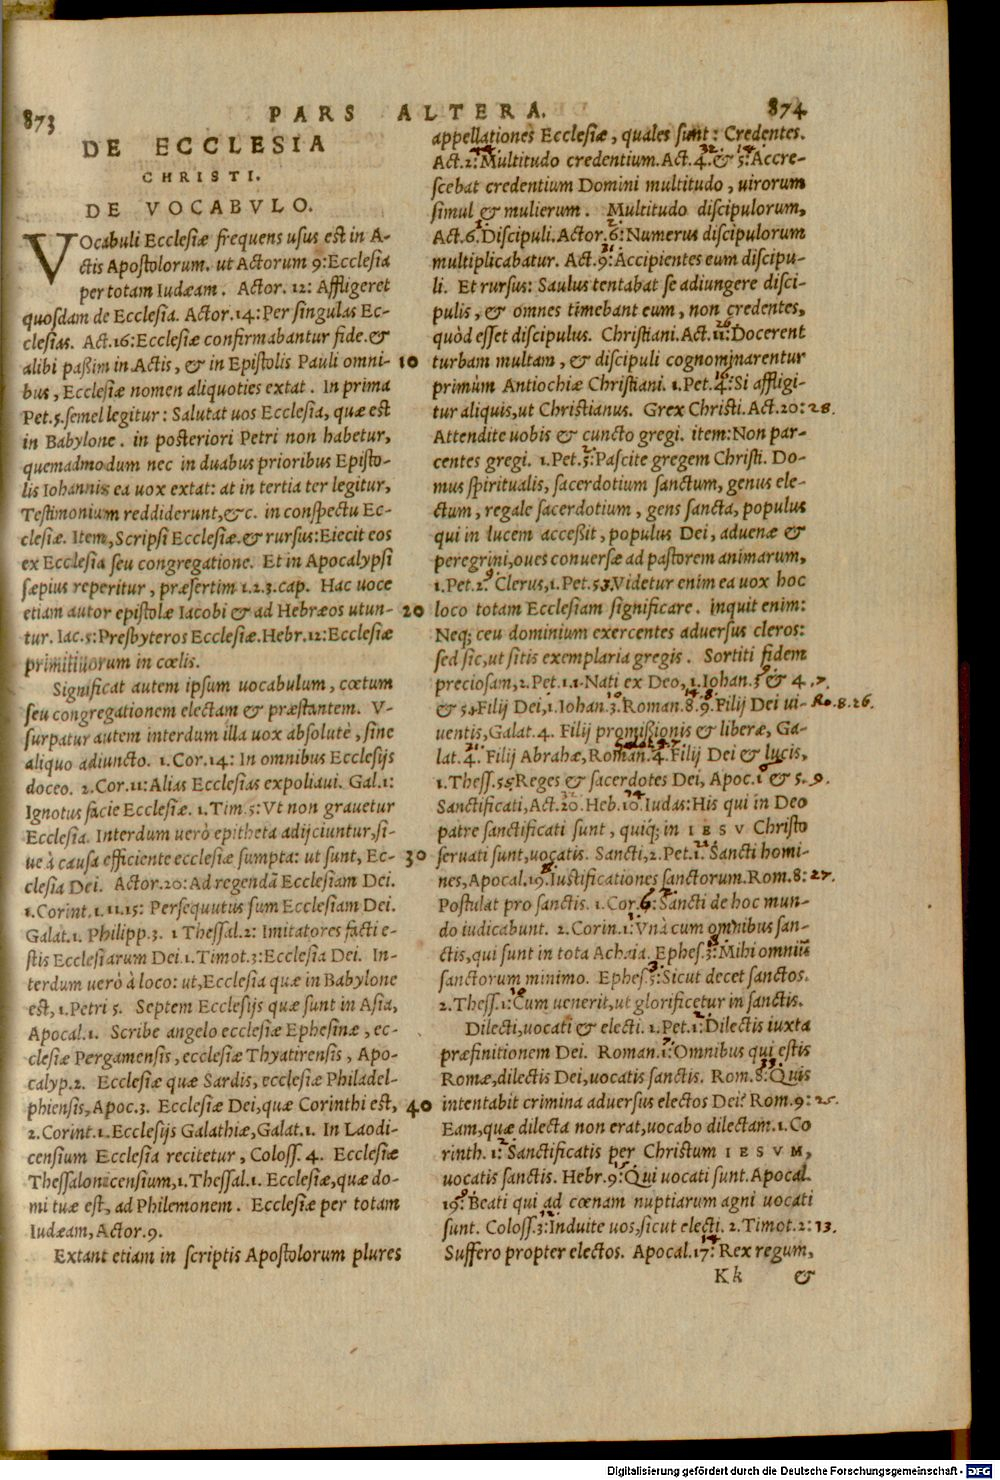 873 PARS ALTERA. 874
DE ECCLESIA
CHRISTI.
DE VOCABVLO.
VOcabuli Ecclesiæ frequens usus est in A-
ctis Apostolorum. ut Actorum 9: Ecclesia
per totam Iudæam. Actor. 12: Affligeret
quosdam de Ecclesia. Actor. 14: Per singulas Ec-
clesias. Act. 16: Ecclesiæ confirmabantur fide. &
alibi paßim in Actis, & in Epistolis Pauli omni-
bus, Ecclesiæ nomen aliquoties extat. In prima
Pet. 5. semel legitur: Salutat uos Ecclesia, quæ est
in Babylone. in posteriori Petri non habetur,
quemadmodum nec in duabus prioribus Episto-
lis Iohannis ea uox extat: at in tertia ter legitur,
Testimonium reddiderunt, &c. in conspectu Ec-
clesiæ. Item, Scripsi Ecclesiæ. & rursus: Eiecit eos
ex Ecclesia seu congregatione. Et in Apocalypsi
sæpius reperitur, præsertim 1.2.3. cap. Hac uoce
etiam autor epistolæ Iacobi & ad Hebræos utun-
tur. Iac. 5: Presbyteros Ecclesiæ. Hebr. 12: Ecclesiæ
primitiuorum in cœlis.
Significat autem ipsum uocabulum, cœtum
seu congregationem electam & præstantem. V-
surpatur autem interdum illa uox absolutè, sine
aliquo adiuncto. 1. Cor. 14: In omnibus Ecclesijs
doceo. 2. Cor. 11: Alias Ecclesias expoliaui. Gal. 1:
Ignotus facie Ecclesiæ. 1. Tim. 5: Vt non grauetur
Ecclesia. Interdum uerò epitheta adijciuntur, si-
ue à causa efficiente ecclesiæ sumpta: ut sunt, Ec-
clesia Dei. Actor. 20: Ad regendā Ecclesiam Dei.
1. Corint. 1. 11. 15: Persequutus sum Ecclesiam Dei.
Galat. 1. Philipp. 3. 1 Thessal. 2: Imitatores facti e-
stis Ecclesiarum Dei. 1. Timot. 3: Ecclesia Dei. In-
terdum uerò à loco: ut, Ecclesia quæ in Babylone
est, 1. Petri 5. Septem Ecclesijs quæ sunt in Asia,
Apocal. 1. Scribe angelo ecclesiæ Ephesinæ, ec-
clesiæ Pergamensis, ecclesiæ Thyatirensis, Apo-
calyp. 2. Ecclesiæ quæ Sardis, ecclesiæ Philadel-
phiensis, Apoc. 3. Ecclesiæ Dei, quæ Corinthi est,
2. Corint. 1. Ecclesijs Galathiæ, Galat. 1. In Laodi-
censium Ecclesia recitetur, Coloss. 4. Ecclesiæ
Thessalonicensium, 1. Thessal. 1. Ecclesiæ, quæ do-
mi tuæ est, ad Philemonem. Ecclesiæ per totam
Iudæam, Actor. 9.
Extant etiam in scriptis Apostolorum plures
10
20
30
40
appellationes Ecclesiæ, quales sunt: Credentes.
Act. 2: Multitudo credentium. Act. 4. & 5: Accre-
scebat credentium Domini multitudo, uirorum
simul & mulierum. Multitudo discipulorum,
Act. 6. Discipuli. Actor. 6: Numerus discipulorum
multiplicabatur. Act. 9: Accipientes eum discipu-
li. Et rursus: Saulus tentabat se adiungere disci-
pulis, & omnes timebant eum, non credentes,
quòd esset discipulus. Christiani. Act. 11: Docerent
turbam multam, & discipuli cognominarentur
primùm Antiochiæ Christiani. 1. Pet. 4: Si affligi-
tur aliquis, ut Christianus. Grex Christi. Act. 20: 28.
Attendite uobis & cuncto gregi. item: Non par-
centes gregi. 1. Pet. 5: Pascite gregem Christi. Do-
mus spiritualis, sacerdotium sanctum, genus ele-
ctum, regale sacerdotium, gens sancta, populus
qui in lucem acceßit, populus Dei, aduenæ &
peregrini, oues conuersæ ad pastorem animarum,
1. Pet. 2. Clerus, 1. Pet. 5. 3. Videtur enim ea uox hoc
loco totam Ecclesiam significare. inquit enim:
Neq; ceu dominium exercentes aduersus cleros:
sed sic, ut sitis exemplaria gregis. Sortiti fidem
preciosam, 2. Pet. 1. 1. Nati ex Deo, 1. Iohan. 3 & 4. 7.
& 5. 1. Filij Dei, 1. Iohan. 3. Roman. 8. 9. Filij Dei ui- Ro. 8. 26.
uentis, Galat. 4. Filij promißionis & liberæ, Ga-
lat. 4. Filij Abrahæ, Roman. 4. Filij Dei & lucis,
1. Thess. 5. 5. Reges & sacerdotes Dei, Apoc. 1 & 5. 9.
Sanctificati, Act. 20. Heb. 10. Iudas: His qui in Deo
patre sanctificati sunt, quiq; in IESV Christo
seruati sunt, uocatis. Sancti, 2. Pet. 1: Sancti homi-
nes, Apocal. 19. Iustificationes sanctorum. Rom. 8: 27.
Postulat pro sanctis. 1. Cor. 6: Sancti de hoc mun-
do iudicabunt. 2. Corin. 1: Vnà cum omnibus san-
ctis, qui sunt in tota Achaia. Ephes. 3: Mihi omniū
sanctorum minimo. Ephes. 5: Sicut decet sanctos.
2. Thess. 1: Cum uenerit, ut glorificetur in sanctis.
Dilecti, uocati & electi. 1. Pet. 1: Dilectis iuxta
præfinitionem Dei. Roman. 1: Omnibus qui estis
Romæ, dilectis Dei, uocatis sanctis. Rom. 8: Quis
intentabit crimina aduersus electos Dei? Rom. 9: 25.
Eam, quæ dilecta non erat, uocabo dilectam. 1. Co
rinth. 1: Sanctificatis per Christum IESVM,
uocatis sanctis. Hebr. 9: Qui uocati sunt. Apocal.
19: Beati qui ad cœnam nuptiarum agni uocati
sunt. Coloss. 3: Induite uos, sicut electi. 2. Timot. 2: 13.
Suffero propter electos. Apocal. 17: Rex regum,
Kk &
Digitalisierung gefördert durch die Deutsche Forschungsgemeinschaft - DFG